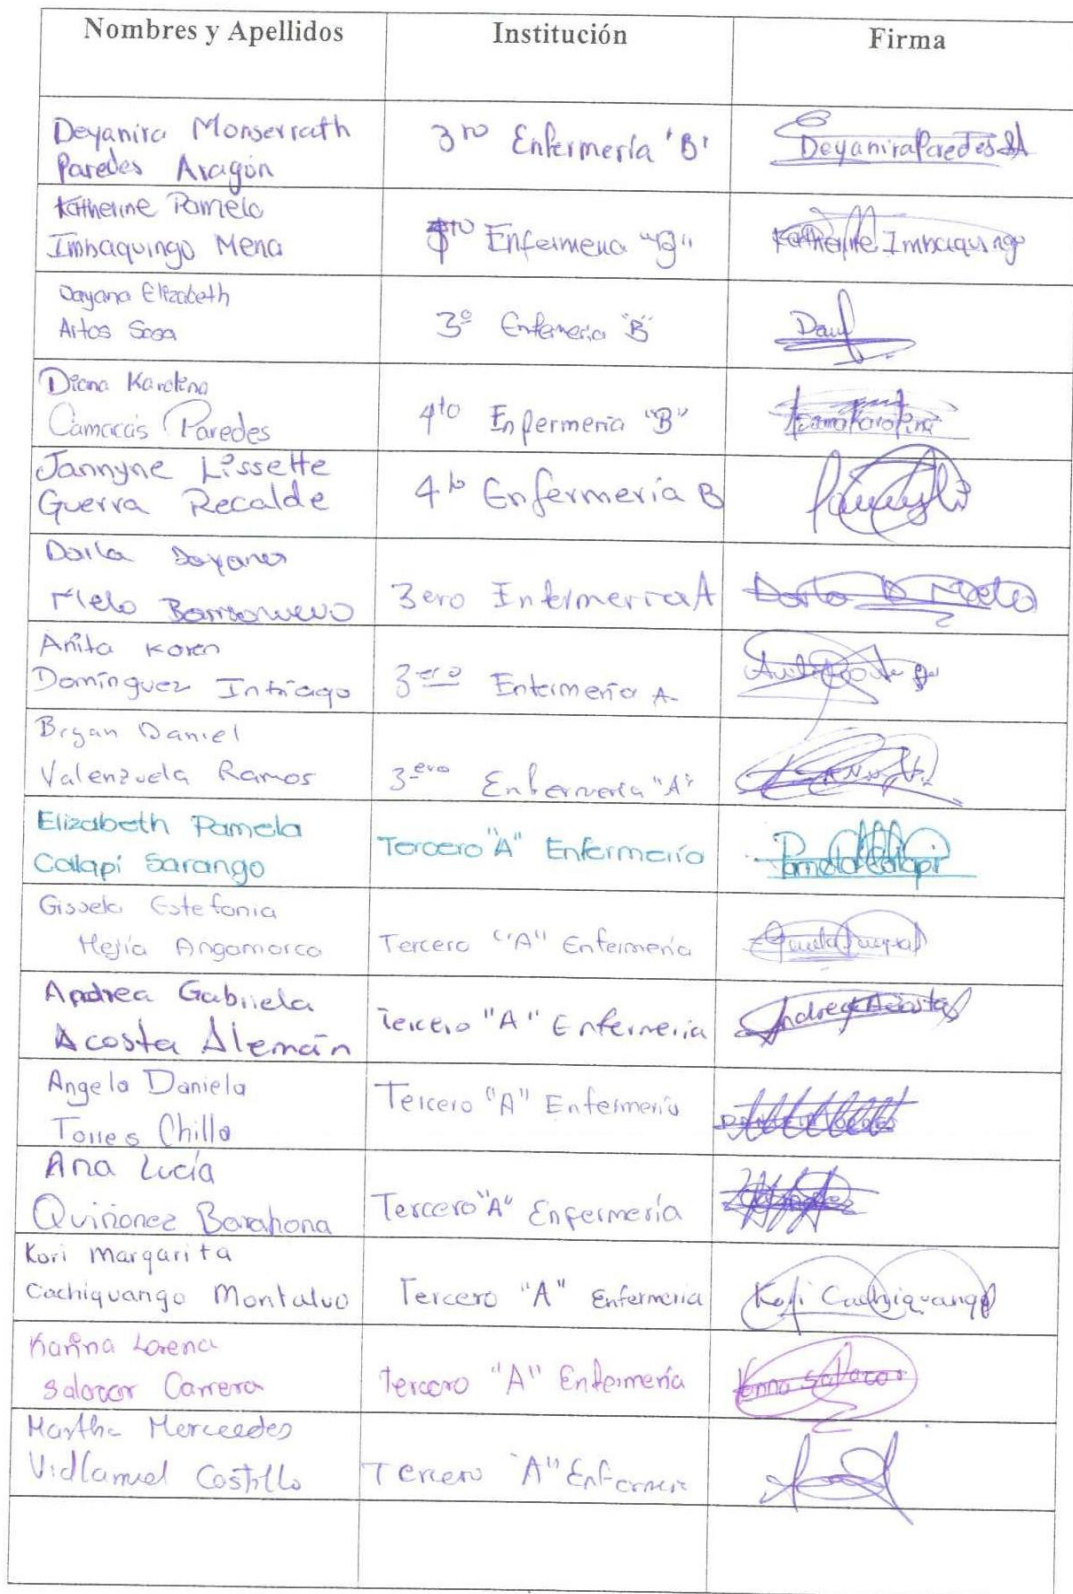 Nombres y Apellidos Institución Firma
Deyanira Monserrath
Paredes Aragón
3ro Enfermería "B"
Deyanira Paredes
Katherine Pamela
Imbaquingo Mena
Enfermeria "B"
Katherine Imbaquingo
Dayana Elizabeth
Artos Sosa
3º Enfermeria "B"
Diana Karolina
Camacás Paredes
4to Enfermeria "B"
Jannyne Lissette
Guerra Recalde
4to Enfermería B
Dayana
Melo
3ero A
Anita Karen
Domínguez Intriago
3ero Enfermería A
Bryan Daniel
Valenzuela Ramos
3ero Enfermería "A"
Elizabeth Pamela
Calapi Sarango
Tercero "A" Enfermería
Pamela Calapi
Gissela Estefania
Mejía Angamarca
Tercero "A" Enfermería
Andrea Gabriela
Acosta Alemán
Tercero "A" Enfermeria
Andrea Acosta
Angela Daniela
Torres Chilla
Tercero "A" Enfermería
Ana Lucía
Quiñonez Barahona
Tercero "A" Enfermería
Kori Margarita
Cachiquango Montalvo
Tercero "A" Enfermeria
Kori Cachiquango
Karina Lorena
Salazar Carrera
Tercero "A" Enfermería
Salazar
Martha Mercedes
Castillo
Tercero "A"